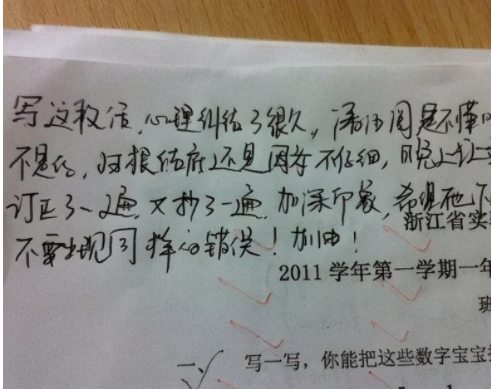 写这段话,心理纠结了很久,
不是的,归根结底还是因为不仔细,晚上让
订正了一遍,又抄了一遍,加深印象,希望他下
不要出现同样的错误!加油!
浙江省实
2011 学年第一学期一年
班
一、写一写,你能把这些数字宝宝